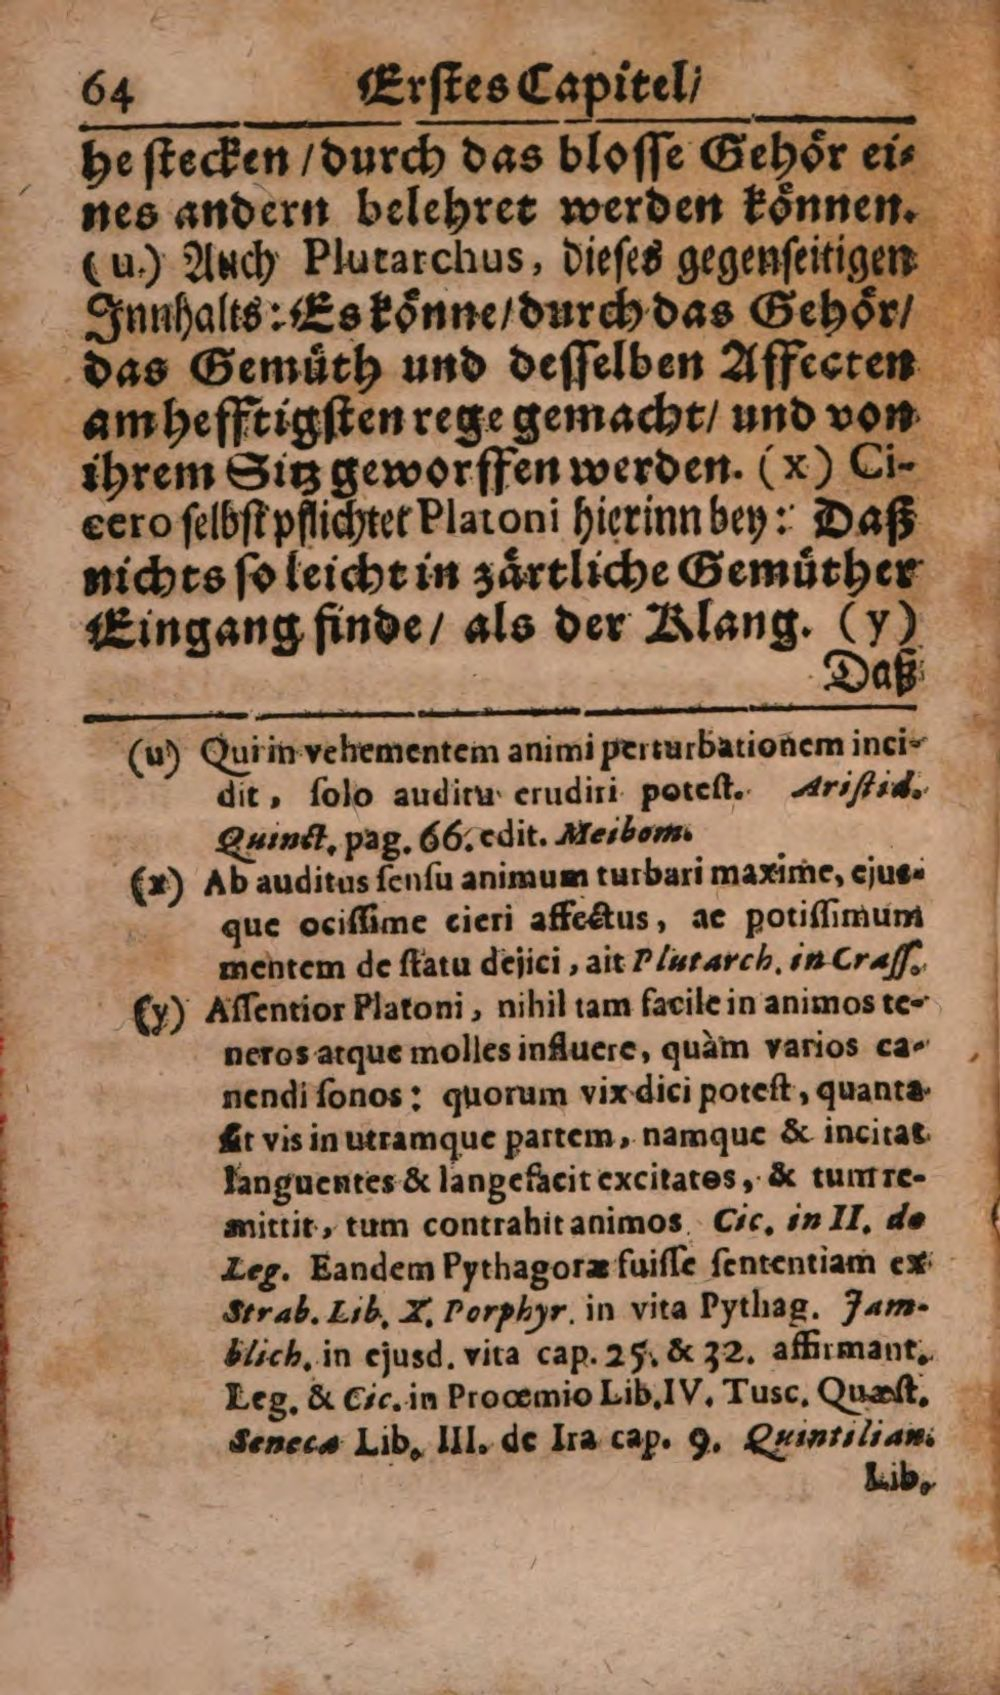 64 Erstes Capitel/
he stecken / durch das blosse Gehör ei-
nes andern belehret werden können.
(u.) Auch Plutarchus, dieses gegenseitigen
Innhalts: Es könne / durch das Gehör /
das Gemüth und desselben Affecten
am hefftigsten rege gemacht / und von
ihrem Sitz geworffen werden. (x) Ci-
cero selbst pflichtet Platoni hierinn bey: Daß
nichts so leicht in zärtliche Gemüther
Eingang finde / als der Klang. (y)
Daß
(u) Qui in vehementem animi perturbationem inci-
dit, ſolo auditu erudiri poteſt. Ariſtid.
Quinct. pag. 66. edit. Meibom.
(x) Ab auditus ſenſu animum turbari maxime, ejus-
que ociſſime cieri affectus, ac potiſſimum
mentem de ſtatu dejici, ait Plutarch. in Craſſ.
(y) Aſſentior Platoni, nihil tam facile in animos te-
neros atque molles influere, quàm varios ca-
nendi ſonos: quorum vix dici poteſt, quanta
ſit vis in utramque partem, namque & incitat
languentes & langefacit excitatos, & tum re-
mittit, tum contrahit animos. Cic. in II. de
Leg. Eandem Pythagoræ fuiſſe ſententiam ex
Strab. Lib. X. Porphyr. in vita Pythag. Jam-
blich. in ejusd. vita cap. 25. & 32. affirmant.
Leg. & Cic. in Proœmio Lib. IV. Tusc. Quæſt.
Seneca Lib. III. de Ira cap. 9. Quintilian.
Lib.